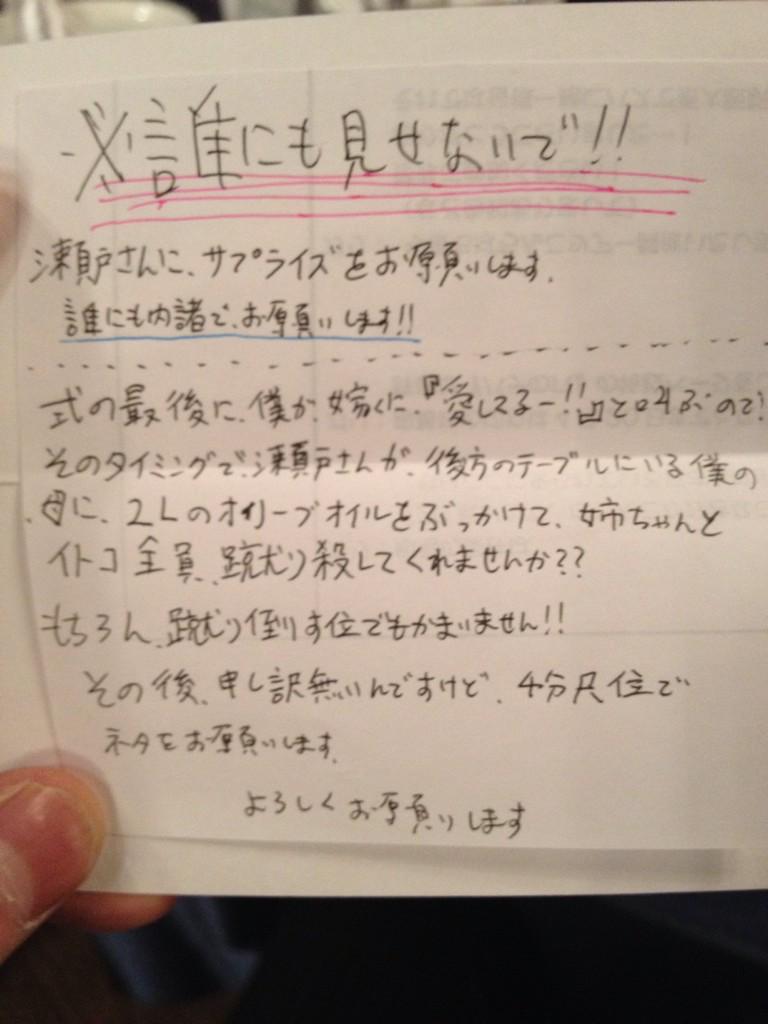 ※誰にも見せないで!!
瀬戸さんに、サプライズをお願いします。
誰にも内諸で、お願いします!!
式の最後に、僕が、嫁に、『愛してるー!!』と叫ぶので!
そのタイミングで、瀬戸さんが、後方のテーブルにいる僕の
母に、2Lのオリーブオイルをぶっかけて、姉ちゃんと
イトコ全員、蹴り殺してくれませんか??
もちろん、蹴り倒す位でもかまいません!!
その後、申し訳無いんですけど、4分尺位で
ネタをお願いします。
よろしくお願いします